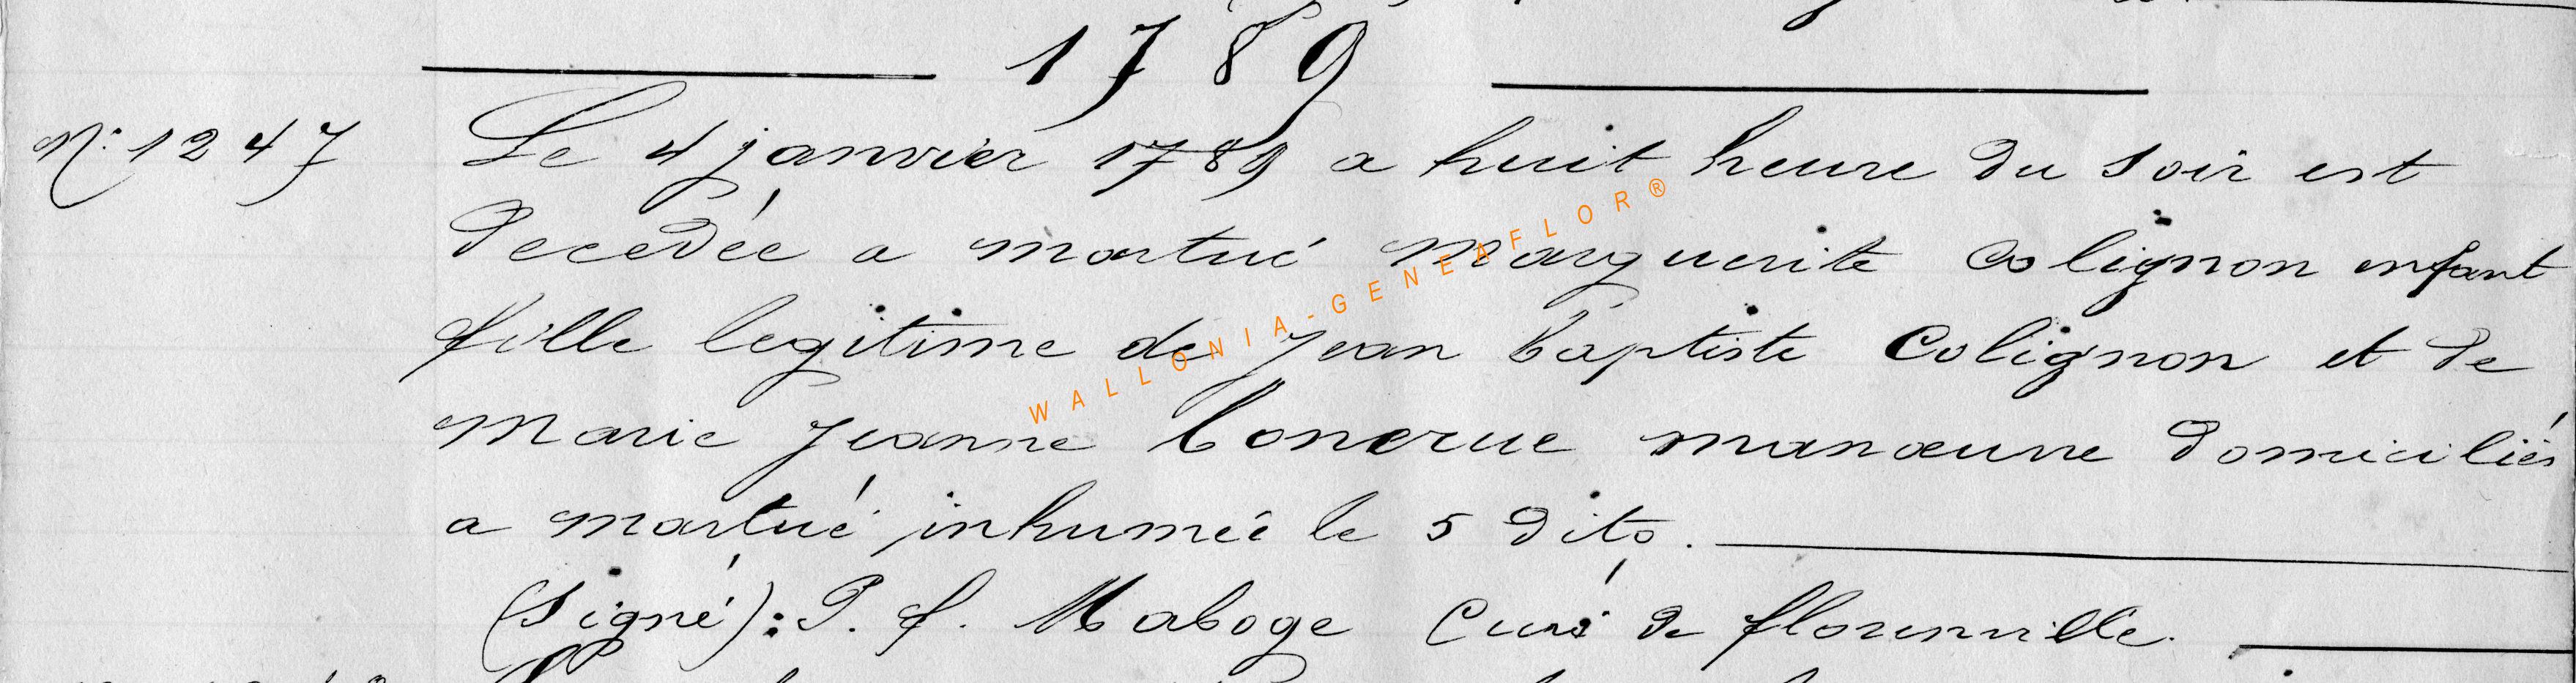 1789
N° 1247 Le 4 janvier 1789 a huit heure du soir est
decedée a martué Marguerite Colignon enfant
fille legitime de Jean baptiste Colignon et de
Marie Jeanne Conerue manœuvre domiciliés
a martué inhumée le 5 dito.
(Signé): P. f. Maboge Curé de florenville.
WALLONIA-GENEAFLOR®